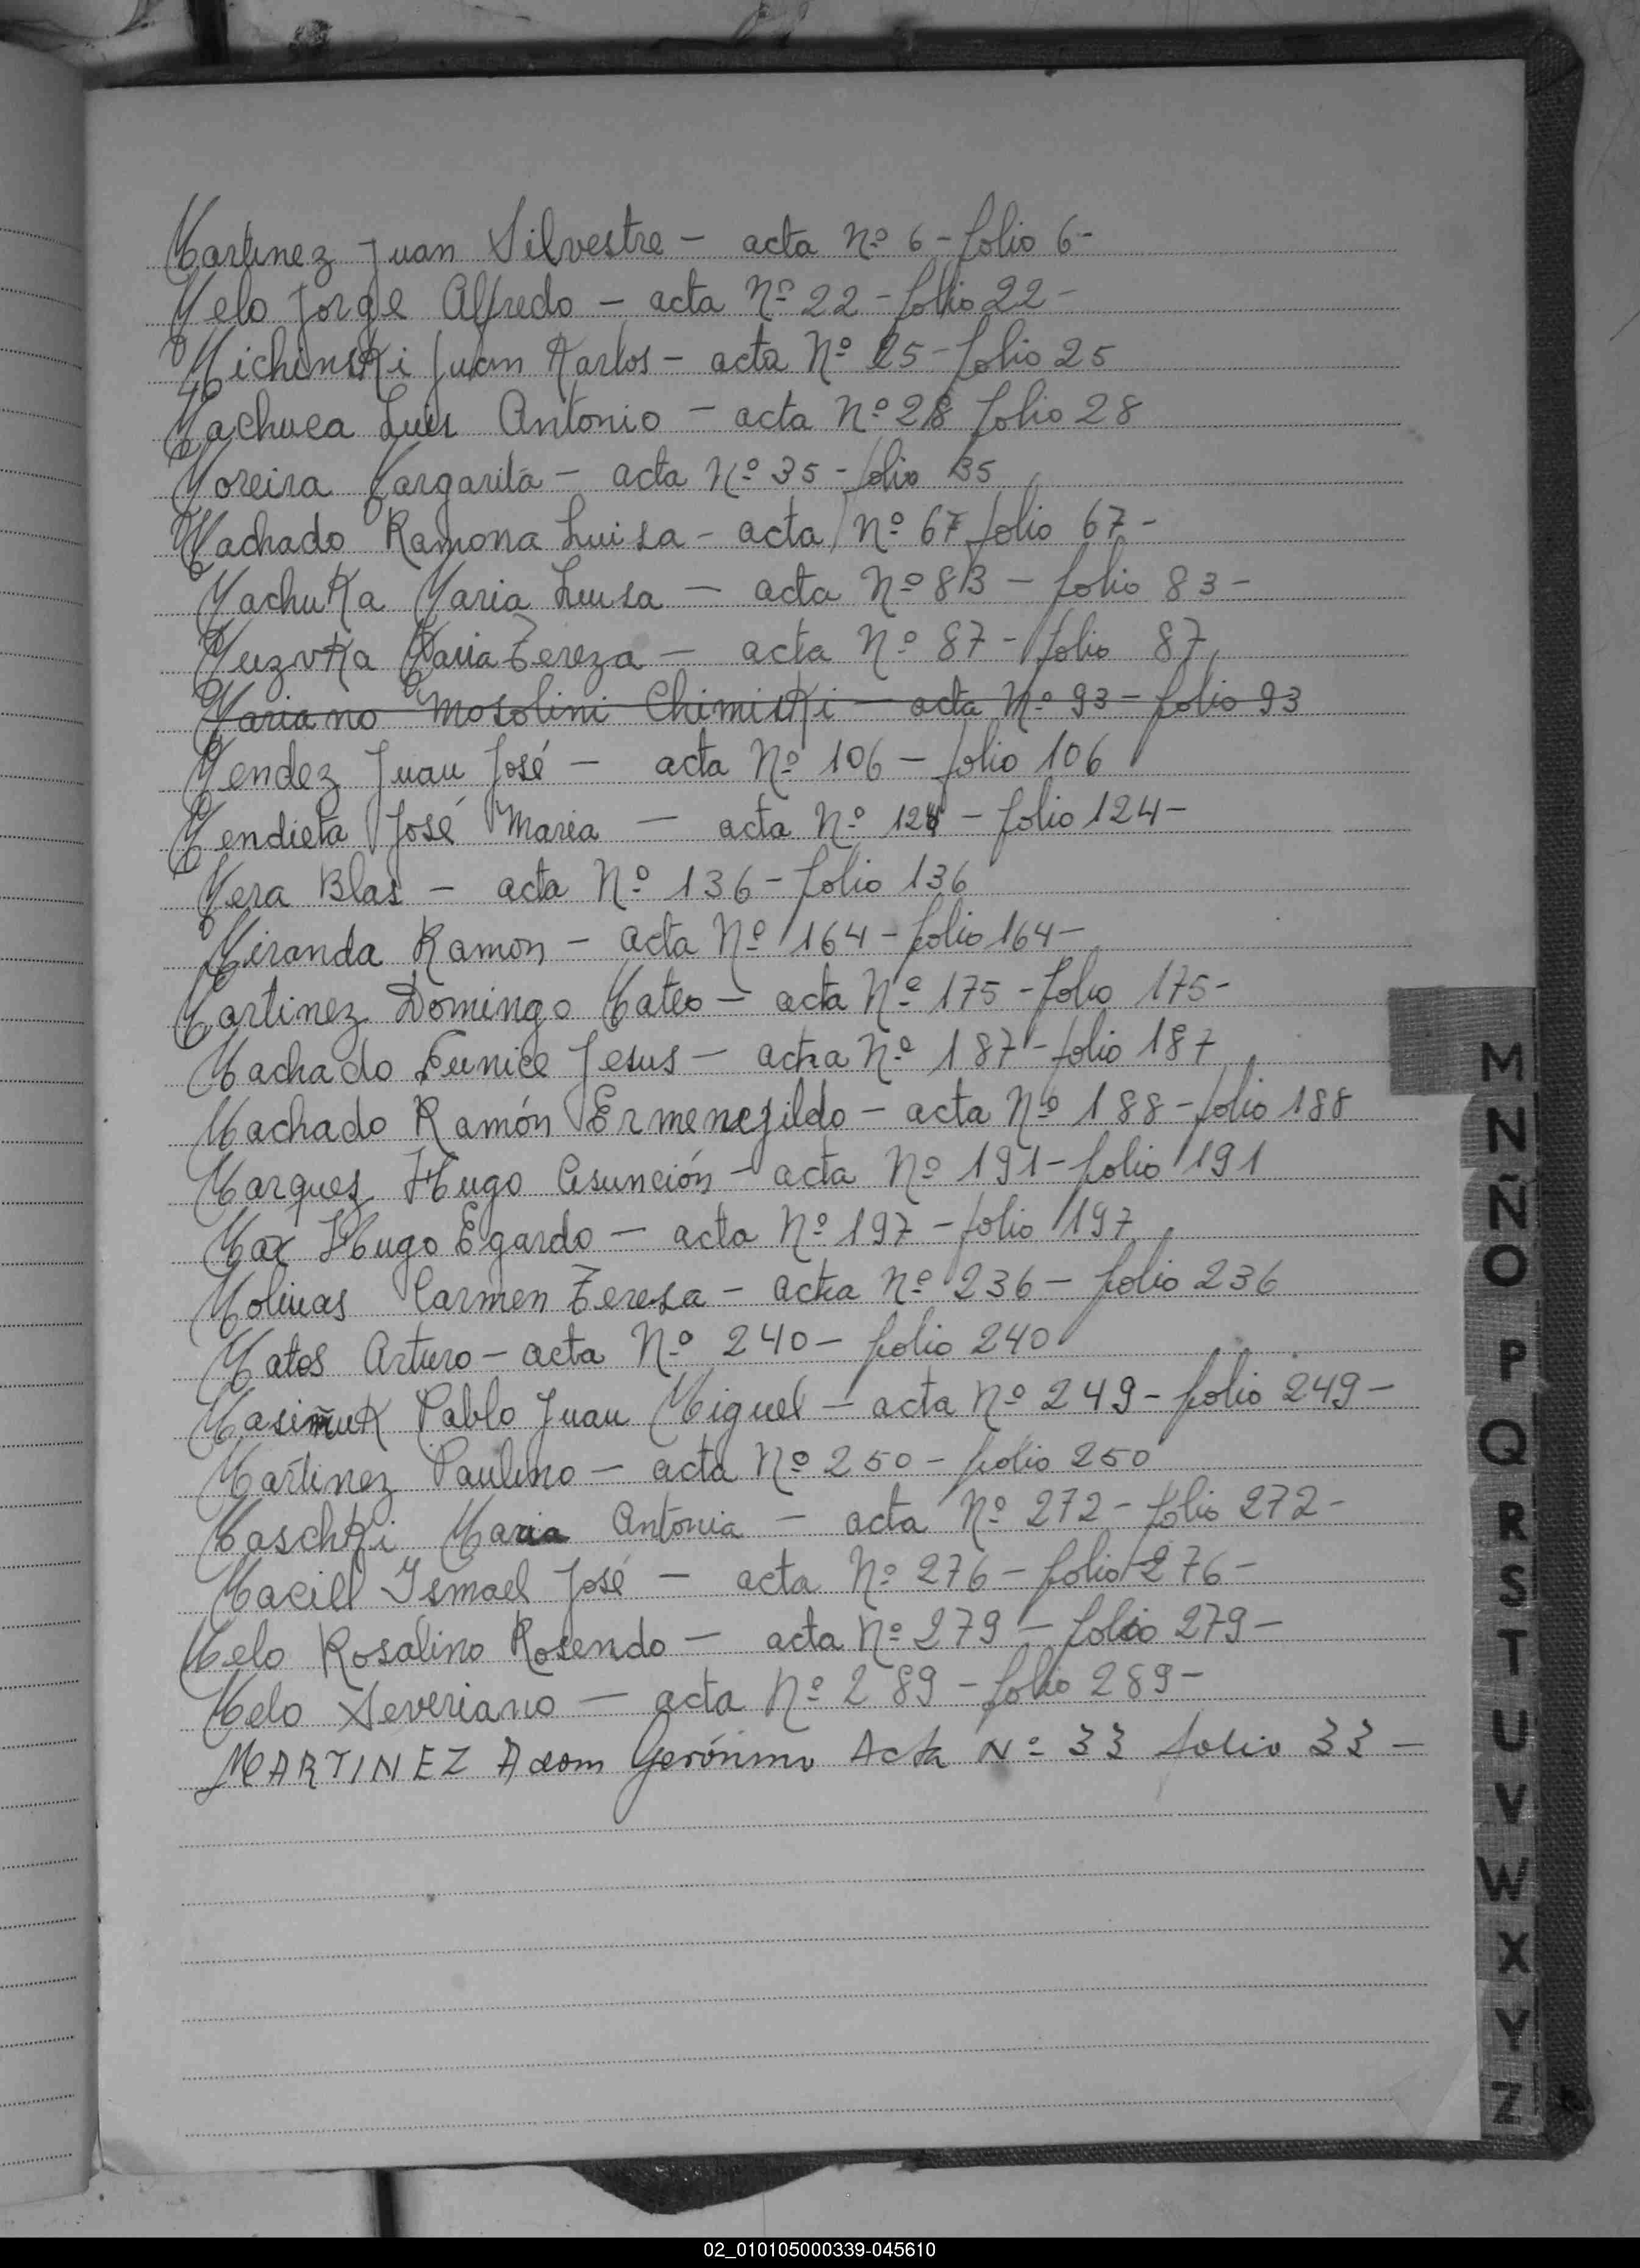 Martinez Juan Silvestre - acta Nº 6 - folio 6 -
Melo Jorge Alfredo - acta Nº 22 - folio 22 -
Michinski Juan Karlos - acta Nº 25 - folio 25
Machuca Luis Antonio - acta Nº 28 folio 28
Moreira Margarita - acta Nº 35 - folio 35
Machado Ramona Luisa - acta Nº 67 folio 67 -
MachuKa Maria Luisa - acta Nº 83 - folio 83 -
Muzvka Maria Tereza - acta Nº 87 - folio 87
Mariano Mosolini Chimiski - acta Nº 93 - folio 93
Mendez Juan José - acta Nº 106 - folio 106
Mendieta José Maria - acta Nº 124 - folio 124 -
Mera Blas - acta Nº 136 - folio 136
Miranda Ramon - acta Nº 164 - folio 164 -
Martinez Domingo Mateo - acta Nº 175 - folio 175 -
Machado Eunice Jesus - acta Nº 187 - folio 187
Machado Ramón Ermenejildo - acta Nº 188 - folio 188
Marquez Hugo Asunción - acta Nº 191 - folio 191
Max Hugo Egardo - acta Nº 197 - folio 197
Molinas Carmen Teresa - acta Nº 236 - folio 236
Matos Arturo - acta Nº 240 - folio 240
Masiñuk Pablo Juan Miguel - acta Nº 249 - folio 249 -
Martinez Paulino - acta Nº 250 - folio 250
Maschki Maria Antonia - acta Nº 272 - folio 272 -
Maciel Ismael José - acta Nº 276 - folio 276 -
Melo Rosalino Rosendo - acta Nº 279 - folio 279 -
Melo Severiano - acta Nº 289 - folio 289 -
MARTINEZ Gerónimo Acta Nº 33 folio 33 -
M
N
Ñ
O
P
Q
R
S
T
U
V
W
X
Y
Z
02_010105000339-045610